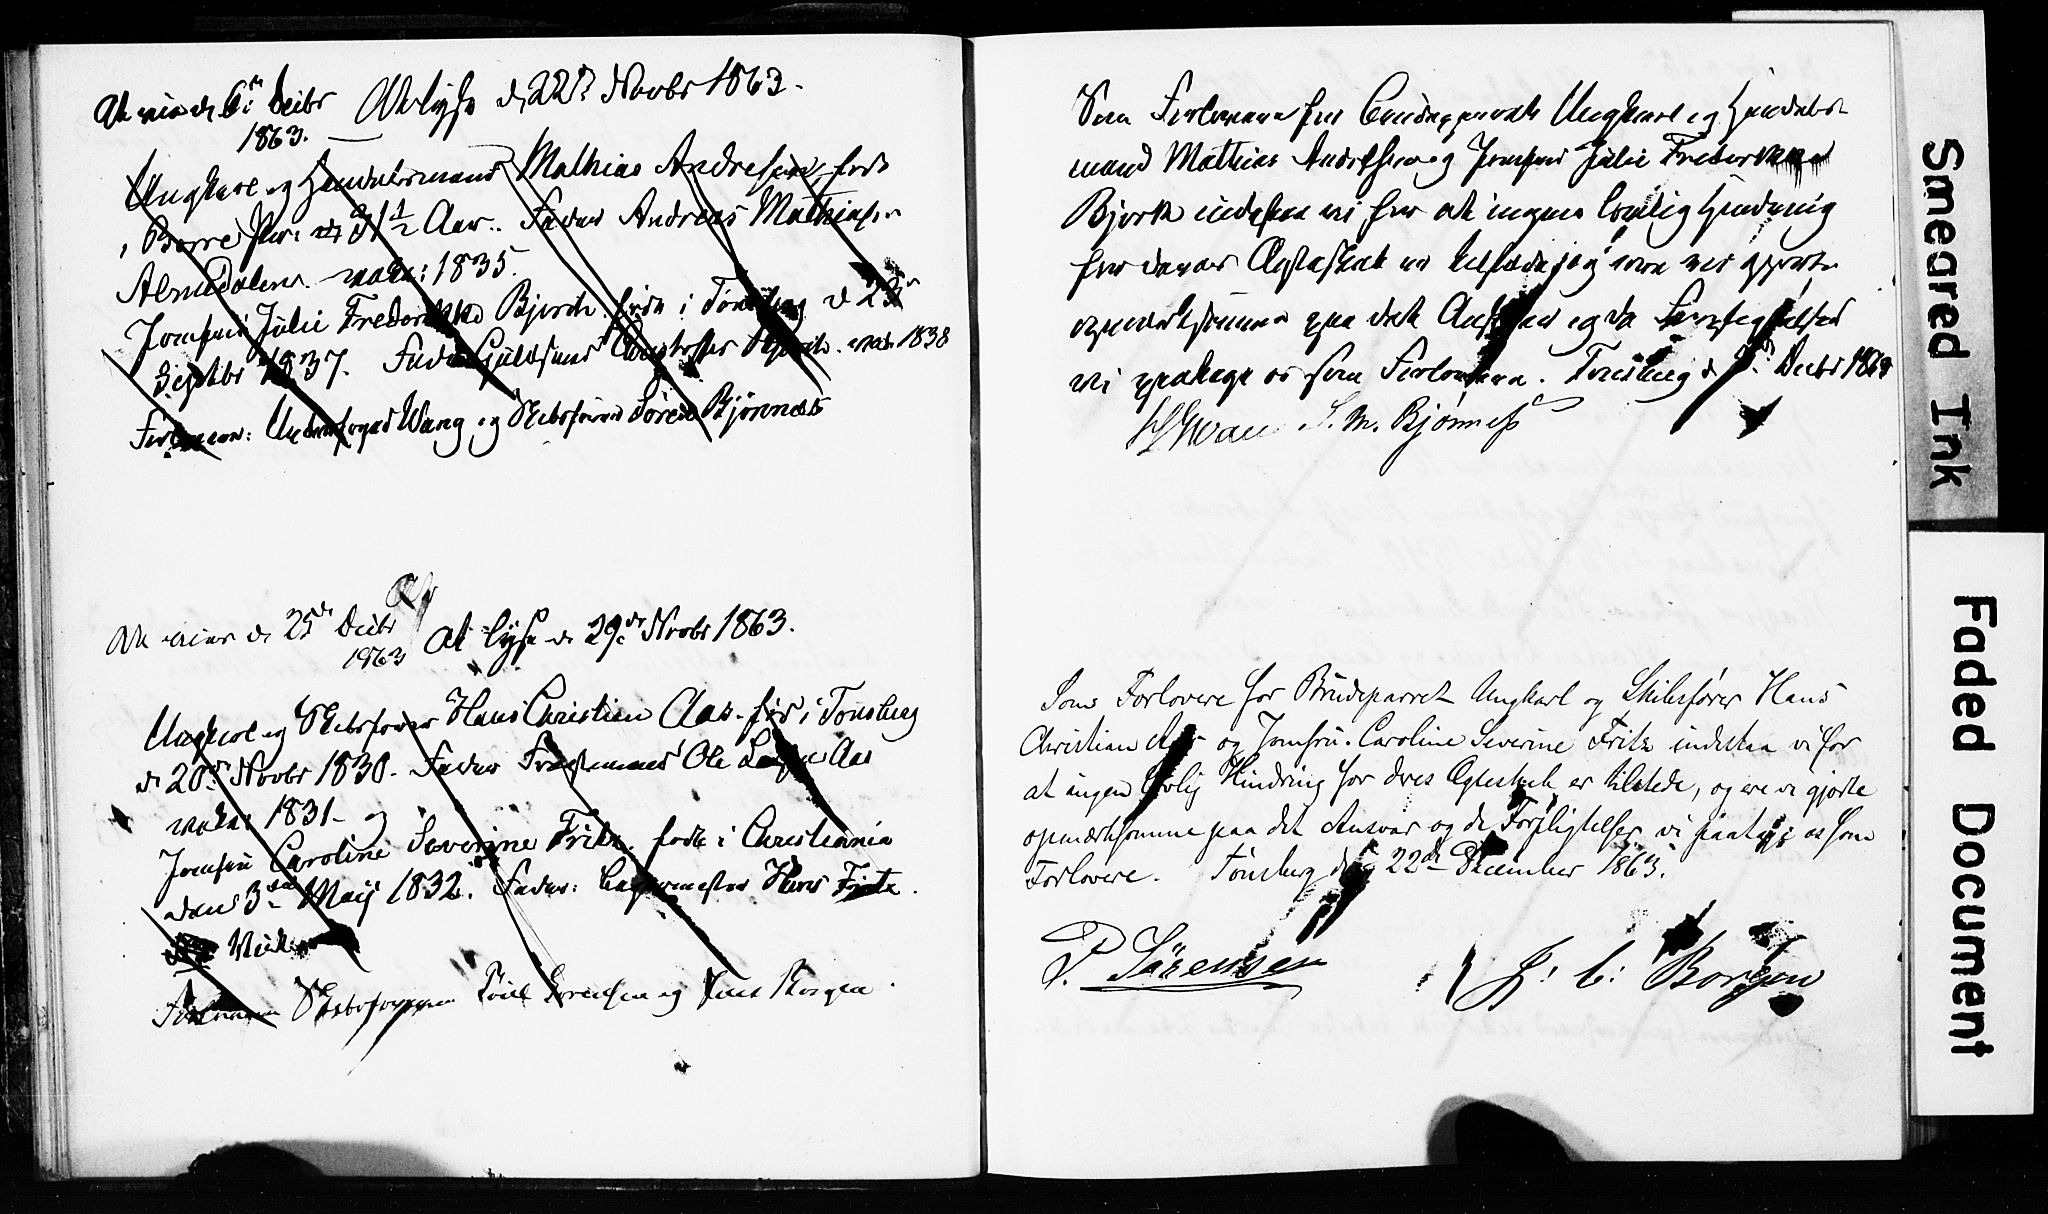 At vie d. 6te Decbr
1863.
At lyse d. 22de Novbr 1863.
Ungkarl og Handelsmand Mathias Andresen, født
i Borre 31 1/2 Aar. Fader Andreas Mathiesen
vakc: 1835.
Jomfru Julie Frederikke Bjerch født i Tønsberg d. 23
Septbr 1837. Fader Guldsmed Bjerch. vac. 1838
Forlovere: Wang og Skibsfører Søren Bjønnes
At vies d. 25de Decbr
1863
At lyse d. 29de Novbr 1863.
Ungkarl og Skibsfører Hans Christian Aas. fød i Tønsberg
d. 20de Novbr 1830. Fader Ole Aas
vakc: 1831 - og
Jomfru Caroline Severine Fritz. født i Christiania
den 3die Maij 1832. Fader: Hans Fritz.
Forlovere Skibsfører Sørensen og Borgen.
Som Forlovere for Brudeparret Ungkarl og Handels-
mand Mathias Andresen og Jomfru Julie Frederikke
Bjerch indestaa vi for at ingen lovlig Hindring
for deres Ægteskab er tilstede, og ere vi gjorte
opmærksomme paa det Ansvar og de Forpligtelser
vi paatage os som Forlovere. Tønsberg d. Decbr 1863
S. M. Bjønness
Som Forlovere for Brudeparret Ungkarl og Skibsfører Hans
Christian Aas og Jomfru Caroline Severine Fritz indestaa vi for
at ingen lovlig Hindring for deres Ægteskab er tilstede, og ere vi gjorte
opmærksomme paa det Ansvar og de Forpligtelser vi paatage os som
Forlovere. Tønsberg d. 22de December 1863.
P. Sørensen
J. C. Borgen
Smeared Ink
Faded Document